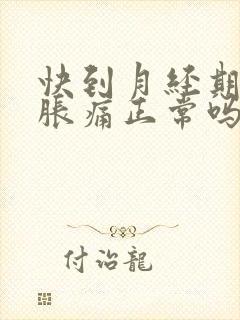 快到月经期
胀痛正常吗
付治龍